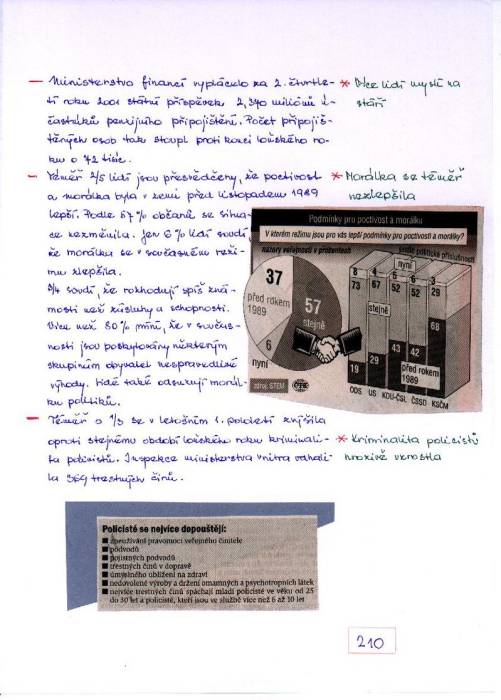 – Ministerstvo financí vyplácelo za 2. čtvrtle-
tí roku 2001 státní příspěvek 2,340 miliónů ú-
častníků penzijního připojištění. Počet připojiš-
těných osob tak stoupl proti konci loňského ro-
ku o 72 tisíc.
* Více lidí myslí na
stáří
– Téměř 2/5 lidí jsou přesvědčeny, že poctivost
a morálka byla v zemi před listopadem 1989
lepší. Podle 57% občanů se situa-
ce nezměnila. Jen 6% lidí soudí,
že morálka se v současném reži-
mu zlepšila.
3/4 soudí, že rozhodují spíš zná-
mosti než zásluhy a schopnosti.
Více než 80% míní, že v součas-
nosti jsou poskytovány některým
skupinám obyvatel nespravedlivé
výhody. Lidé také odsuzují morál-
ku politiků.
* Morálka se téměř
nezlepšila
Podmínky pro poctivost a morálku
V kterém režimu jsou pro vás lepší podmínky pro poctivost a morálku?
názory veřejnosti v procentech
podle politické příslušnosti
37
před rokem
1989
57
stejně
6
nyní
zdroj: STEM
ČTK
nyní
8 4 5 6 3
73 67 52 52 29
stejně
19 29 43 42 68
před rokem
1989
ODS US KDU-ČSL ČSSD KSČM
– Téměř o 1/3 se v letošním 1. pololetí zvýšila
oproti stejnému období loňského roku kriminali-
ta policistů. Inspekce ministerstva vnitra odhali-
la 369 trestných činů.
* Kriminalita policistů
hrozivě vzrostla
Policisté se nejvíce dopouštějí:
■ zneužívání pravomoci veřejného činitele
■ podvodů
■ pojistných podvodů
■ trestných činů v dopravě
■ úmyslného ublížení na zdraví
■ nedovolené výroby a držení omamných a psychotropních látek
■ nejvíce trestných činů spáchají mladí policisté ve věku od 25
do 30 let a policisté, kteří jsou ve službě více než 6 až 10 let
210